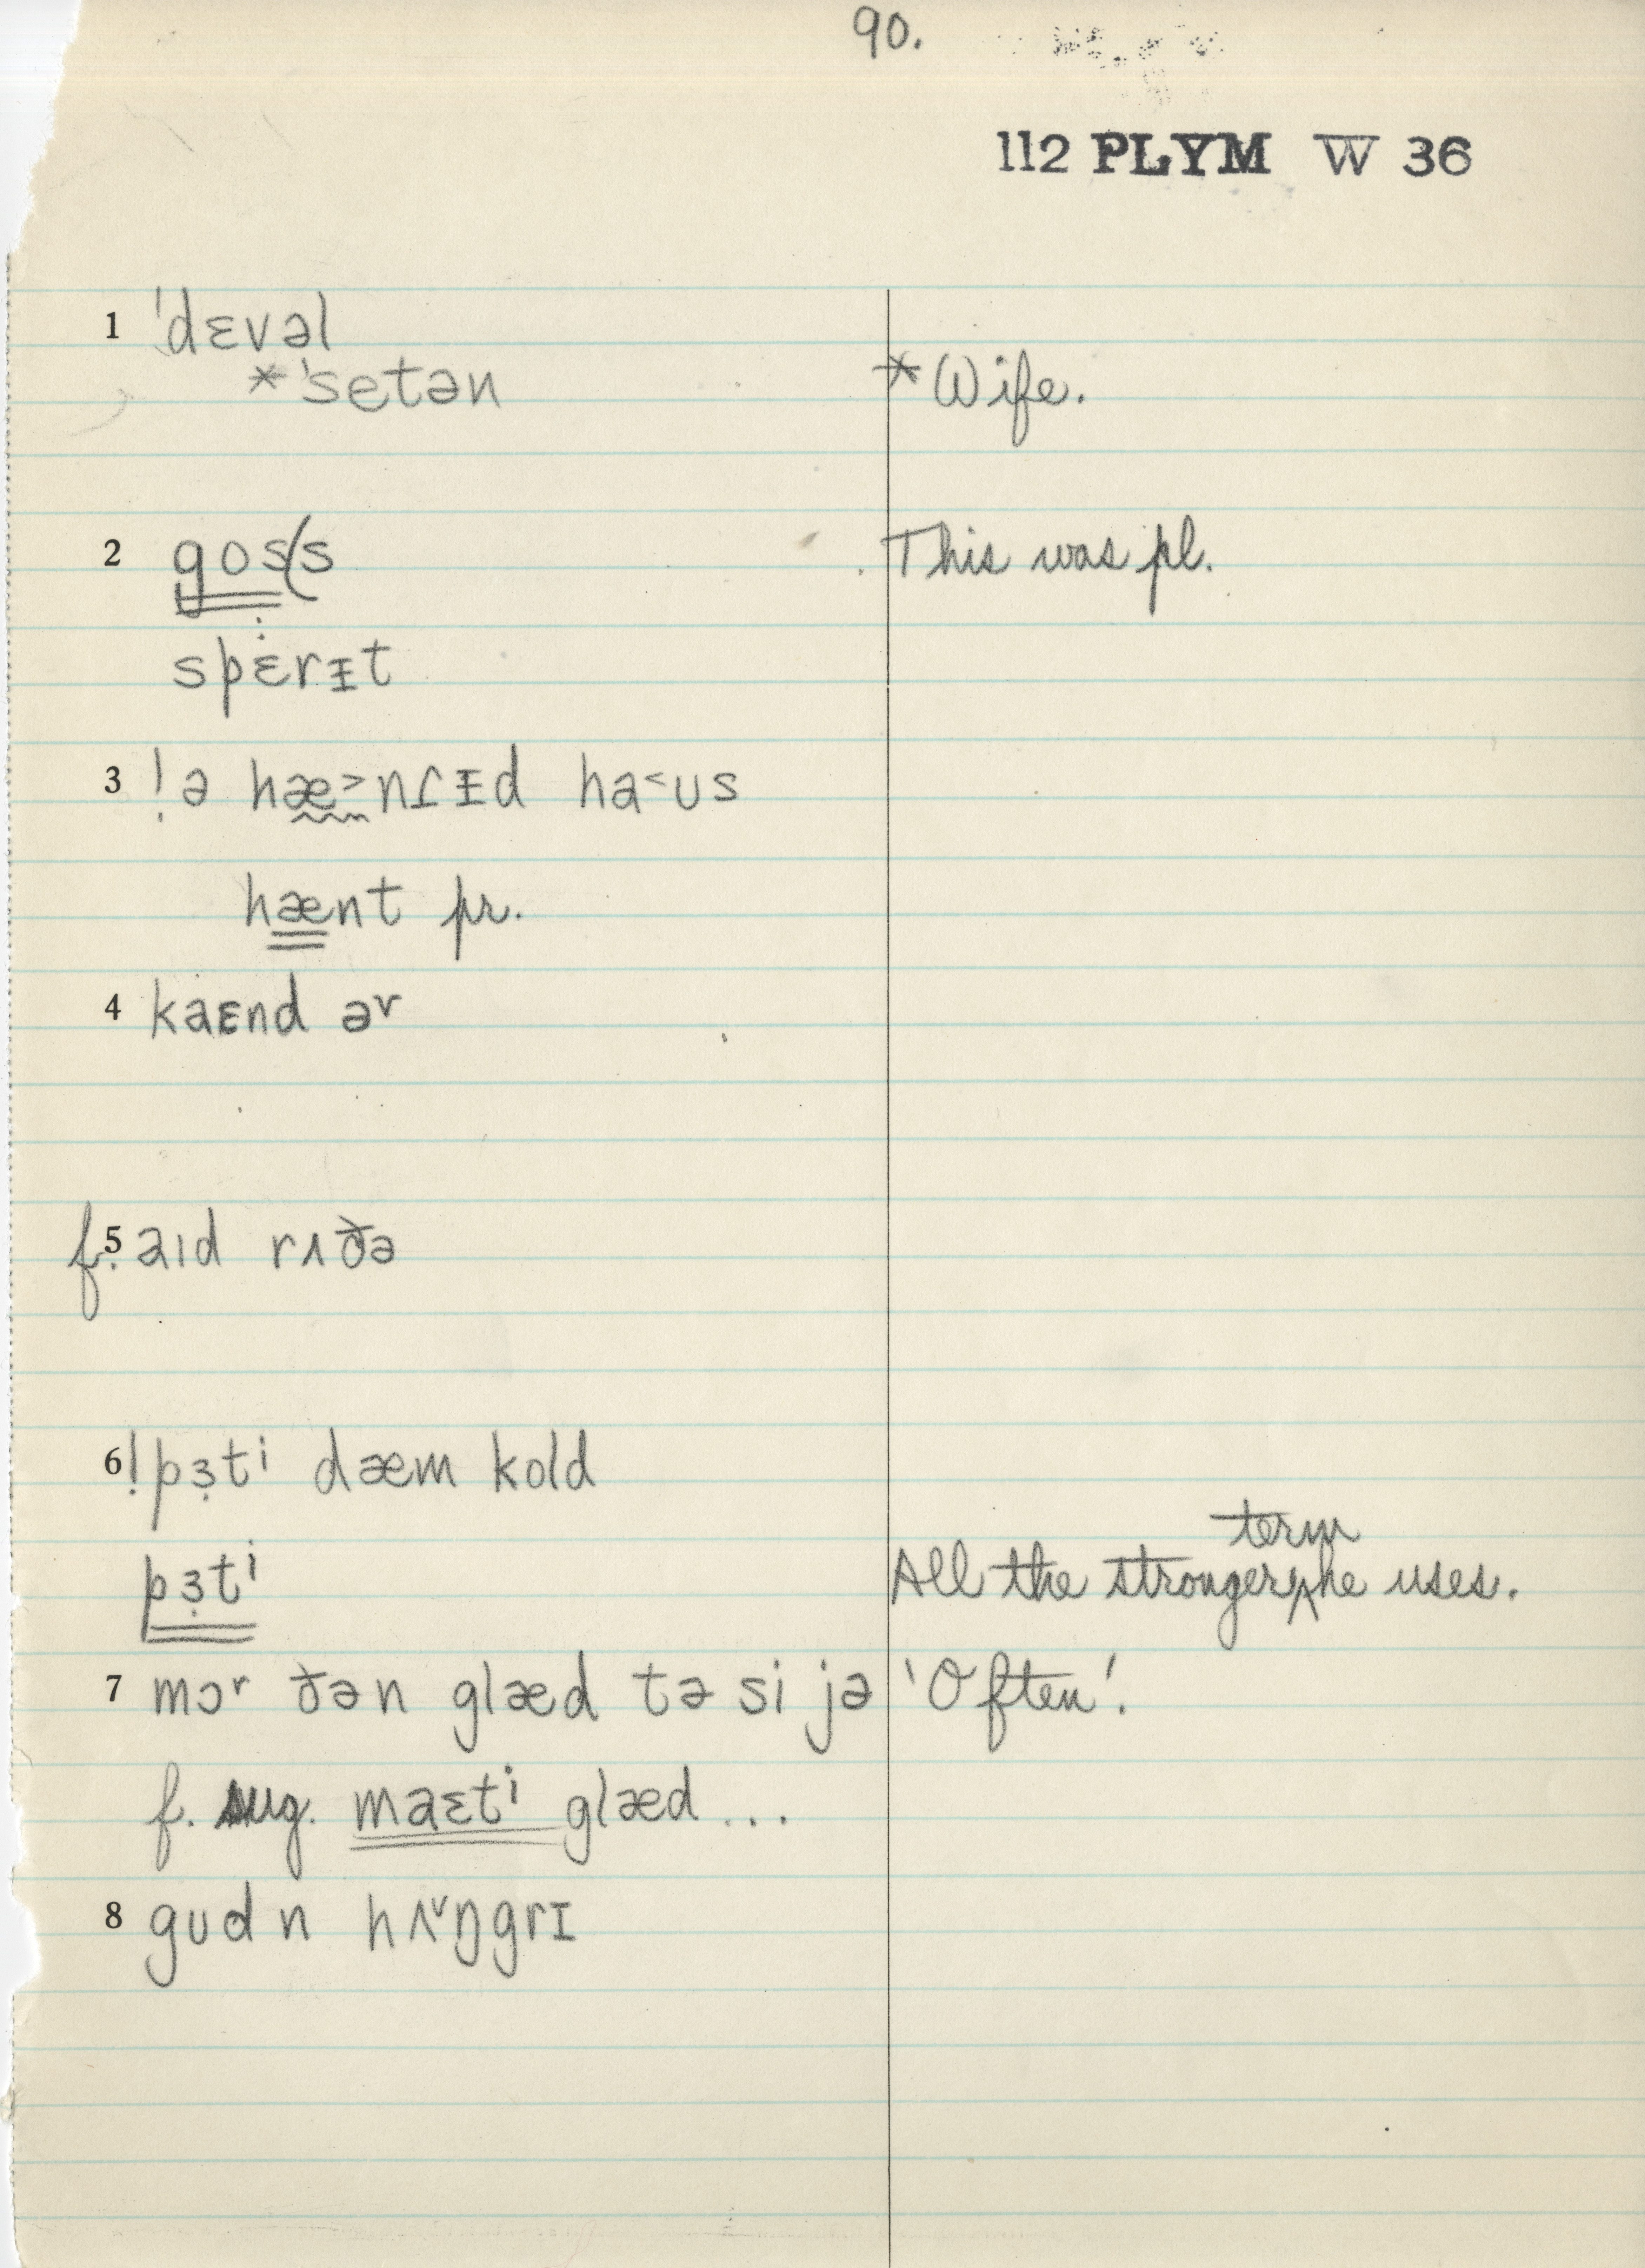 90.
112 PLYM W 36
1 ˈdɛvəl
*ˈsetən *Wife.
2 gos(s This was pl.
spɛ̇rᵻt
3 ! ə hæ˃nɾᵻd ha˂ʊs
hænt pr.
4 kaɛnd əʳ
f. 5 aɪd rʌðə
6 ! pɜ̣tⁱ dæm kold
term
pɜ̣tⁱ All the stronger‸he uses.
7 mɔʳ ðən glæd tə si jə 'Often'.
f. sug. maɛtⁱ glæd ...
8 gʊd n hʌ˅ŋgrɪ